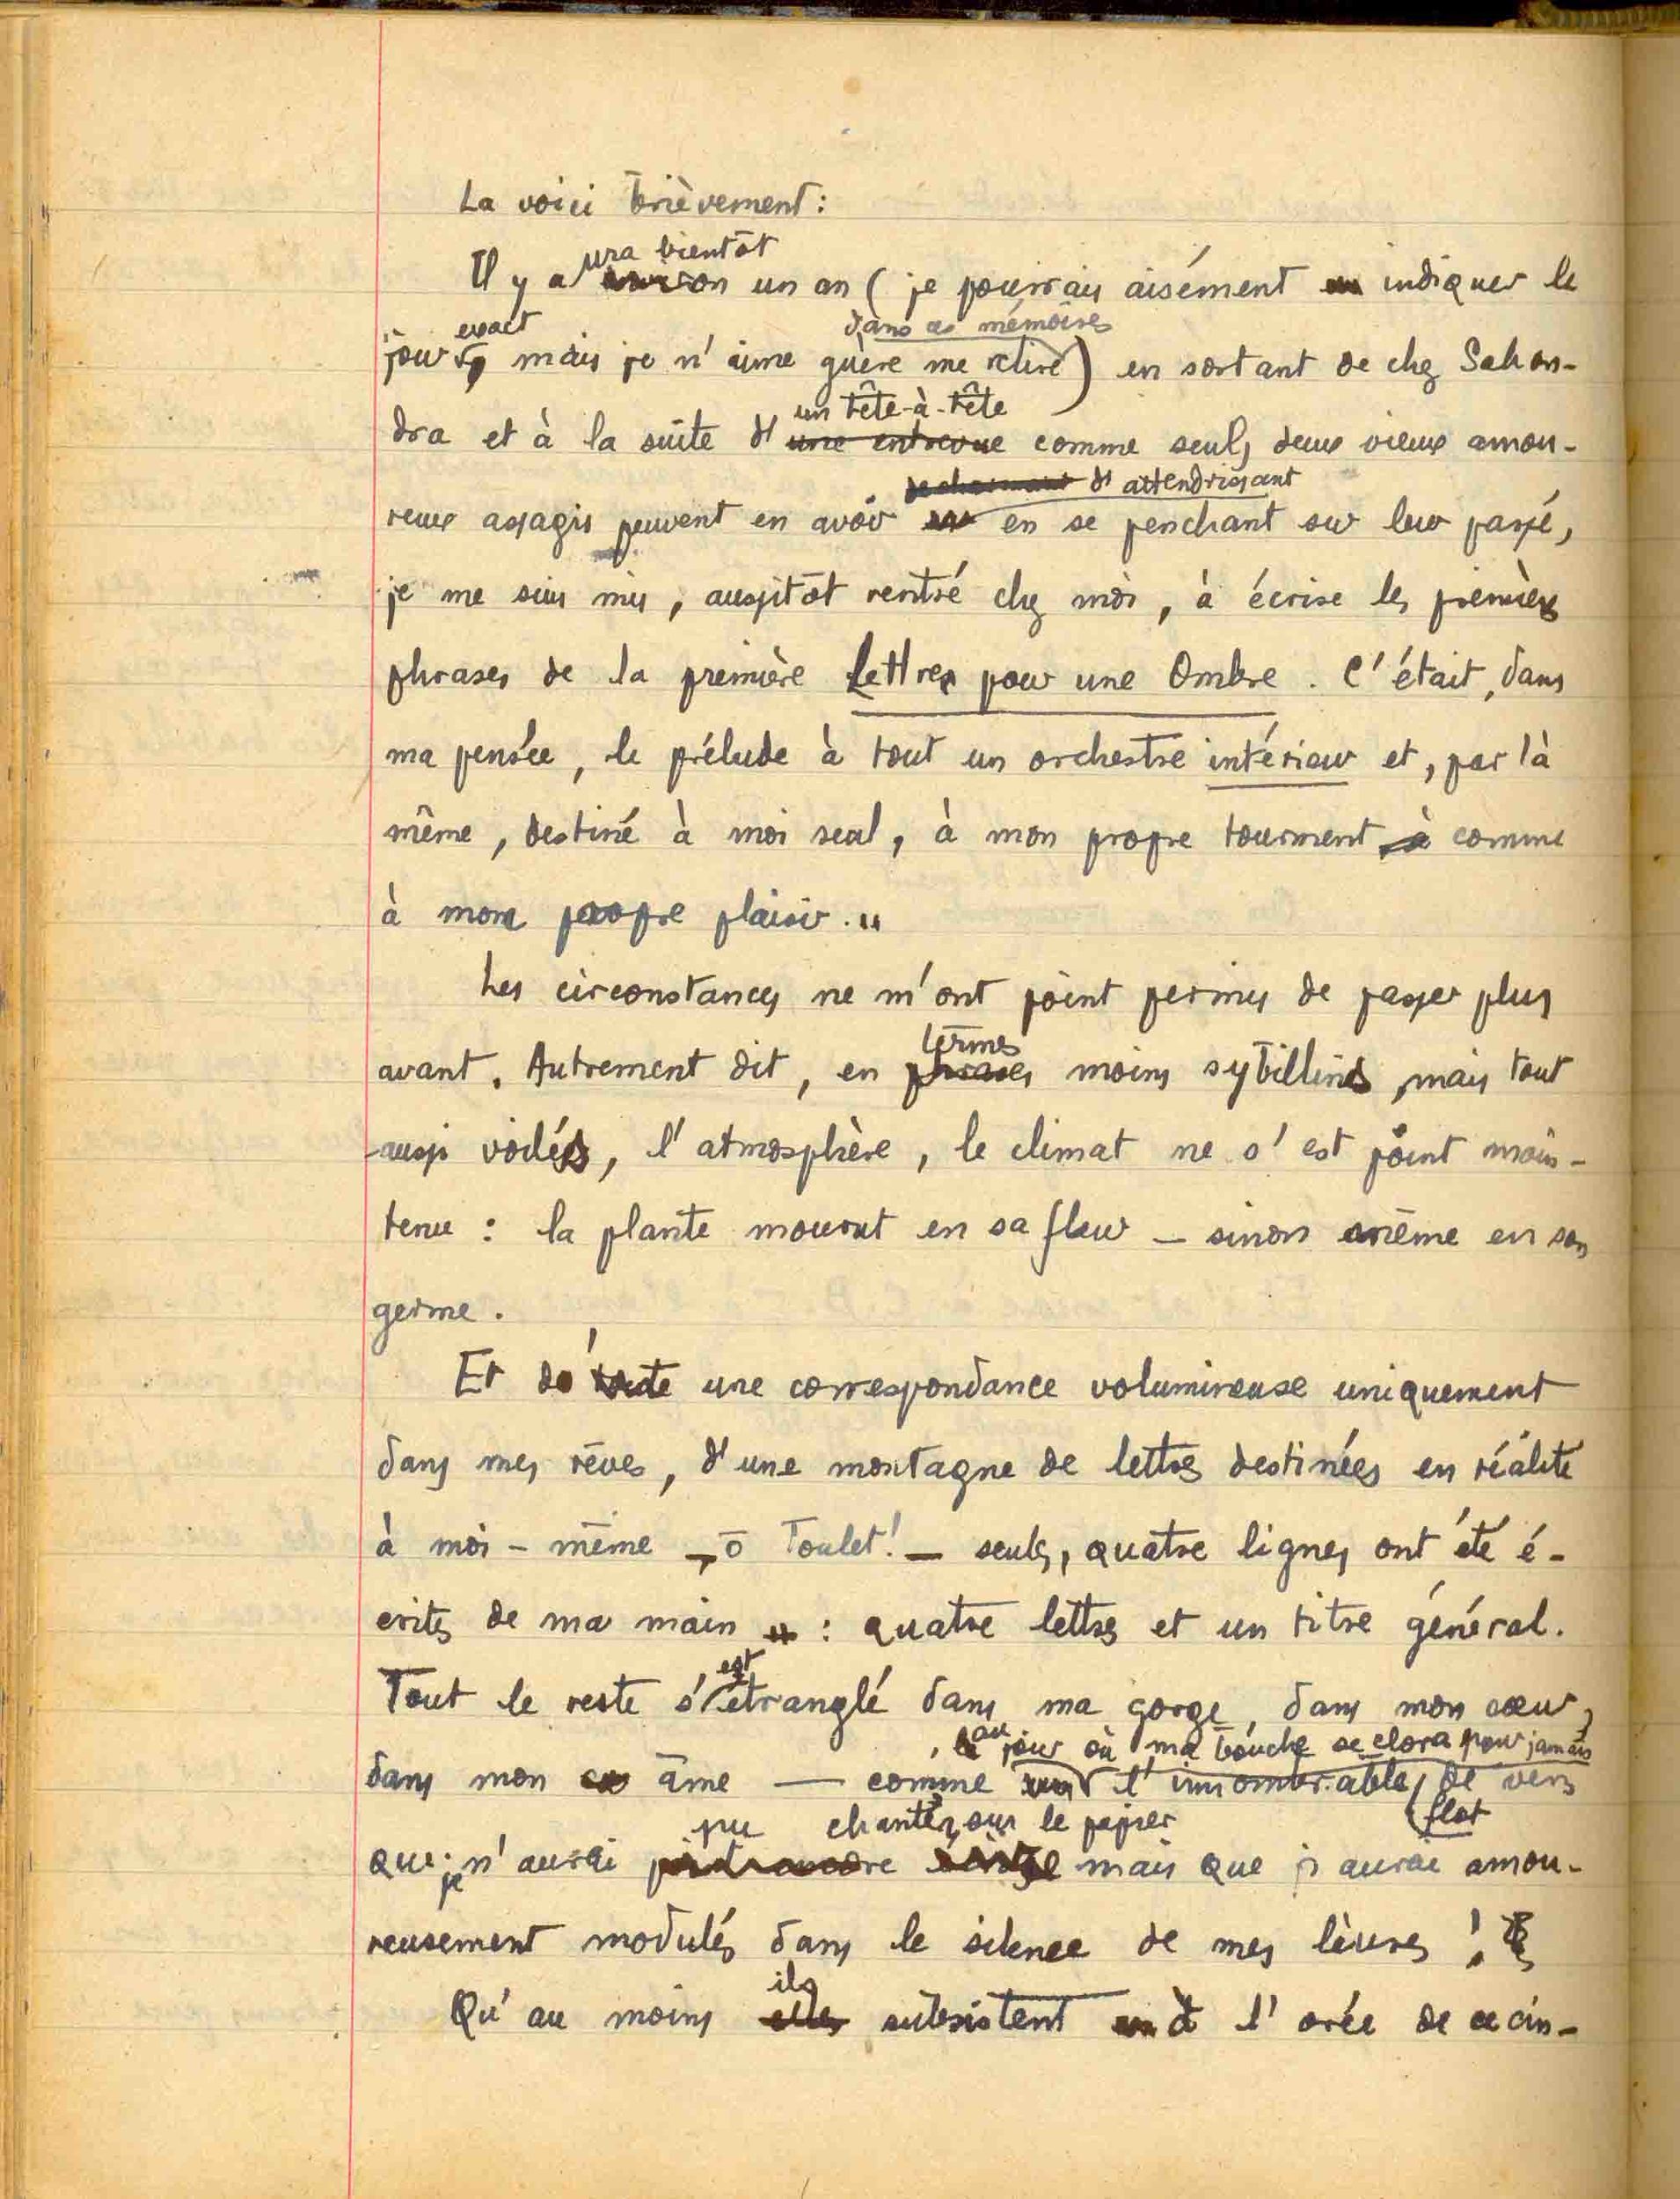 La voici brièvement :
ura bientôt
Il y a environ un an ( je pourrais aisément en indiquer le
exact dans ces mémoires
jour , mais je n'aime guère me relire ) en sortant de chez Sahon-
un tête-à-tête
dra et à la suite d' une entrevue comme seuls deux vieux amou-
de charmant d'attendrissant
reux assagis peuvent en avoir en se penchant sur leur passé,
je me suis mis, aussitôt rentré chez moi, à écrire les premières
phrases de la première Lettres pour une Ombre. C'était, dans
ma pensée, le prélude à tout un orchestre intérieur et, par là
même, destiné à moi seul, à mon propre tourment à comme
à mon propre plaisir...
Les circonstances ne m'ont point permis de passer plus
termes
avant. Autrement dit, en phrases moins sybillins, mais tout
aussi voilés, l'atmosphère, le climat ne s'est point main-
tenu : la plante mourut en sa fleur — sinon même en son
germe.
Et d' toute une correspondance volumineuse uniquement
dans mes rêves, d'une montagne de lettres destinées en réalité
à moi-même —, ô Toulet! — seules, quatre lignes ont été é-
crites de ma main : quatre lettres et un titre général.
est
Tout le reste s'étranglé dans ma gorge, dans mon cœur,
, au jour où ma bouche se clora pour jamais
dans mon âme — comme l'innombrable de vers
pu chanter sur le papier flot
que je n'aurai mais que j'aurai amou-
reusement modulés dans le silence de mes lèvres !
ils
Qu'au moins elles subsistent à l'orée de ce cin-